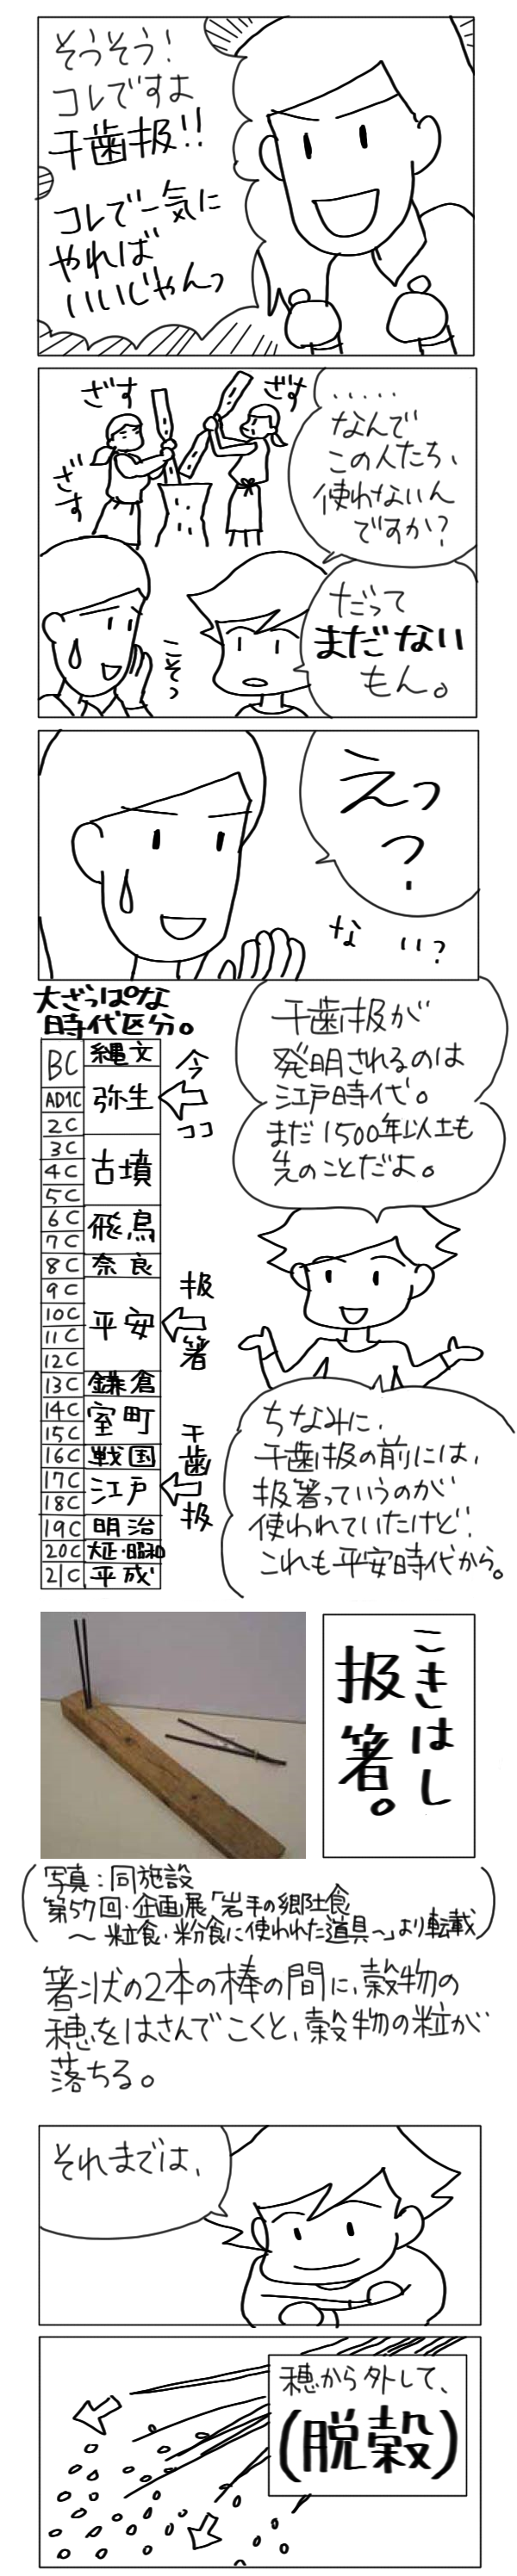 そうそう!
コレですよ
千歯扱!!
コレで一気に
やれば
いいじゃんっ
ざす
ざす
ざす
……
なんで
この人たち、
使わないん
ですか?
だって
まだない
もん。
こそっ
えっ
?
ない?
大ざっぱな
時代区分。
BC 縄文
AD1C 弥生
2C
3C
4C 古墳
5C
6C 飛鳥
7C
8C 奈良
9C
10C 平安
11C
12C
13C 鎌倉
14C 室町
15C
16C 戦国
17C 江戸
18C
19C 明治
20C 大正・昭和
21C 平成
今
ココ
扱箸
千歯扱
千歯扱が
発明されるのは
江戸時代。
まだ1500年以上も
先のことだよ。
ちなみに、
千歯扱の前には、
扱箸っていうのが
使われていたけど、
これも平安時代から。
こきはし
扱箸。
(写真:同施設
第57回・企画展「岩手の郷土食
〜粒食・粉食に使われた道具〜」より転載)
箸状の2本の棒の間に、穀物の
穂をはさんでこくと、穀物の粒が
落ちる。
それまでは、
穂から外して、
(脱穀)